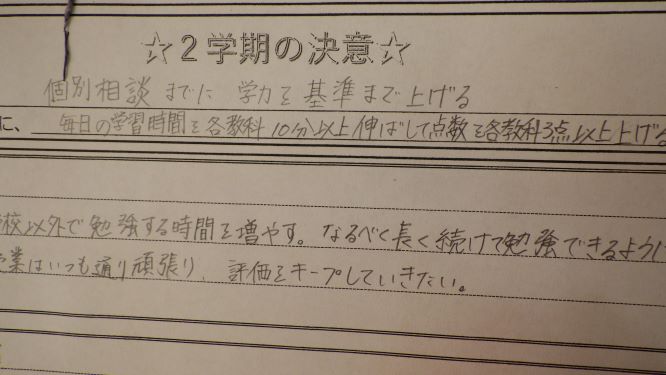 ☆２学期の決意☆
個別相談までに 学力を基準まで上げる
に、毎日の学習時間を各教科10分以上伸ばして点数を各教科3点以上上げる
校以外で勉強する時間を増やす。なるべく長く続けて勉強できるように
業はいつも通り頑張り、評価をキープしていきたい。